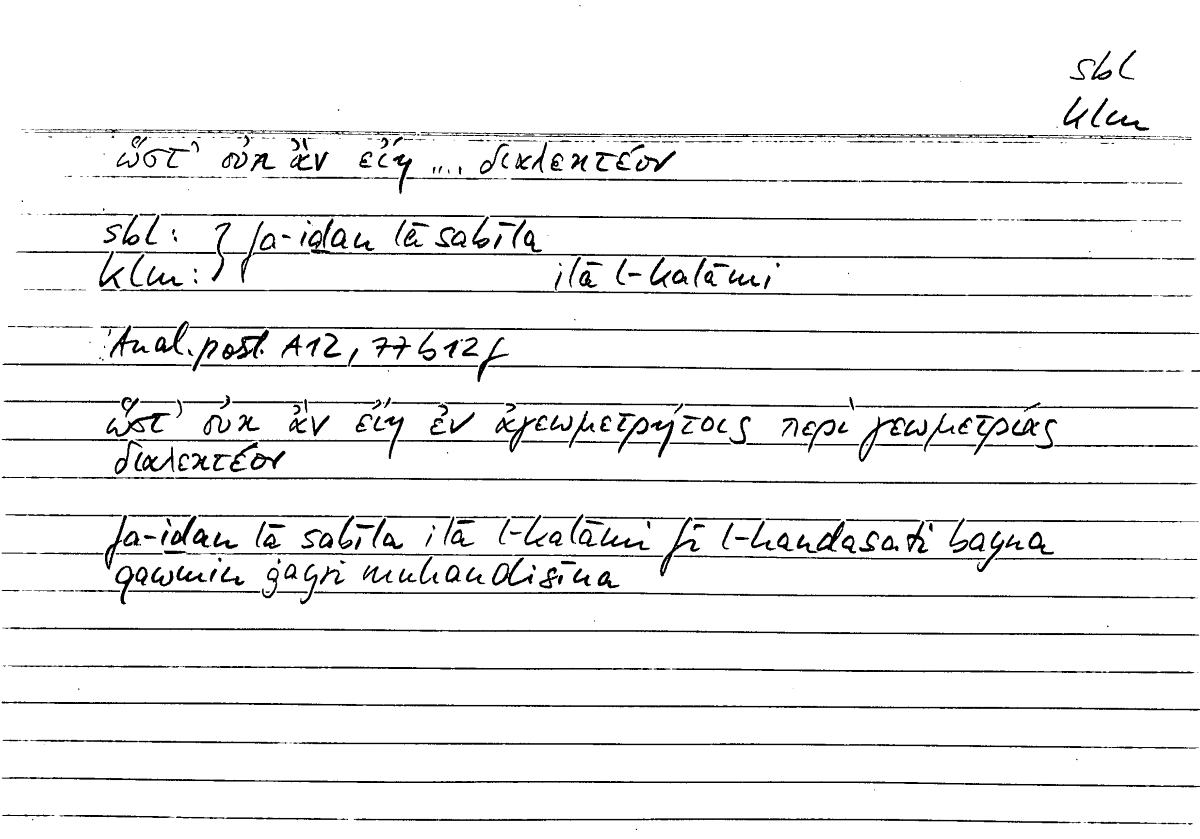 sbl
klm
ὥστ' οὐκ ἂν εἴη .... διαλεκτέον
sbl: } fa-iḏan lā sabīla
klm: } ilā l-kalāmi
Anal. post. A12, 77b12f
ὥστ' οὐκ ἂν εἴη ἐν ἀγεωμετρήτοις περὶ γεωμετρίας
διαλεκτέον
fa-iḏan lā sabīla ilā l-kalāmi fī l-handasati bayna
qawmin ġayri muhandisīna